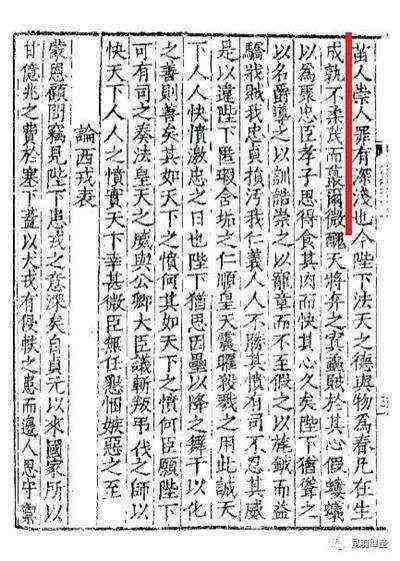 苗人崇人罪有深淺也今陛下法天之德與物為春凡在生
成孰不柔茂而蕞爾微醜天將弃之蟊賊於其心假螻蟻
以為聚忠臣孝子思得食其肉而快其心久矣陛下猶聳之
以名爵導之以訓誥崇之以寵章而不至假之以旄鉞而益
驕戕賊我忠貞損污我仁義人人不勝其憤有司不忍其威
是以違陛下匿瑕含垢之仁順皇天震曜殺戮之用此誠天
下人人快憤激忠之日也陛下猶思因壘以降之舞干以化
之善則善矣其如天下之憤何其如天下之憤何臣願陛下
可有司之奏法皇天之威與公卿大臣議斬叛弔伐之師以
快天下人人之憤實天下幸甚微臣無任懇悃嫉惡之至
論西戎表
蒙恩顧問竊見陛下患戎之意深矣自貞元以來國家所以
甘億兆之費於塞下蓋以犬戎有侵軼之患而邊人思守